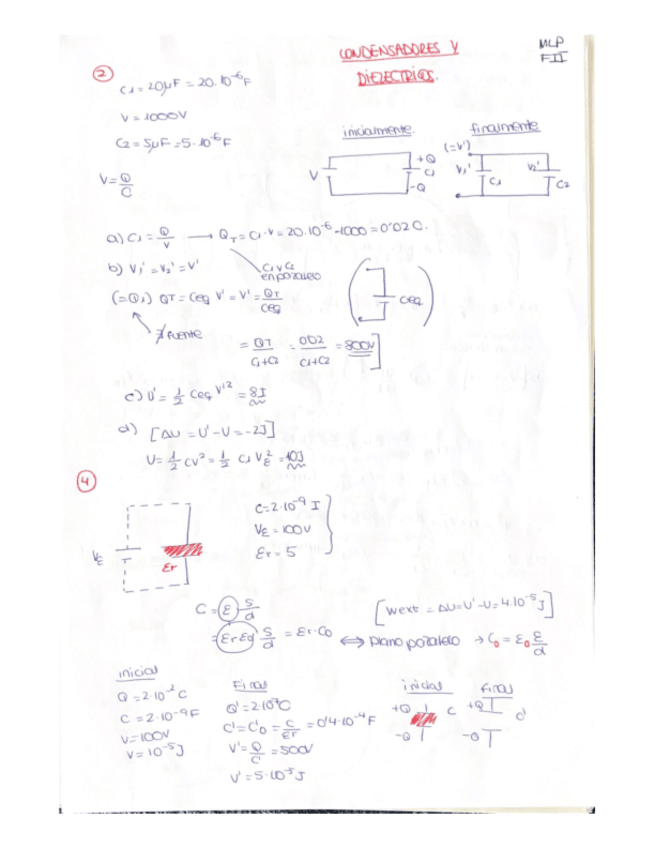 CONDENSADORES Y
DIELECTRICOS.
MLP
FII
2
C1 = 20μF = 20·10⁻⁶F
V = 1000V
C2 = 5μF = 5·10⁻⁶F
V = Q/C
inicialmente
finalmente
V
+Q
C1
-Q
(=V')
V1'
C1
V2'
C2
a) C1 = Q/V → QT = C1·V = 20·10⁻⁶·1000 = 0'02 C.
b) V1' = V2' = V'
C1 y C2
en paralelo
(=Q1) QT = Ceq V' = V' = QT/Ceq
Ceq
∄ fuente
= QT/C1+C2 = 0'02/C1+C2 = 800V]
c) U' = 1/2 Ceq V'² = 8J
d) [ΔU = U' - U = -2J]
U = 1/2 CV² = 1/2 C1 VE² = 10J
4
VE
Er
C = 2·10⁻⁹ I
VE = 100V
Er = 5
C = ε S/d
[Wext = ΔU = U' - U = 4·10⁻⁵J]
= εrε0 S/d = εr·C0 ⟺ plano paralelo → C0 = ε0 E/d
inicial
Q = 2·10⁻² C
C = 2·10⁻⁹F
V = 100V
V = 10⁻⁵J
Final
Q' = 2·10⁻⁷C
C' = C'0 = C/εr = 0'4·10⁻⁹F
V' = Q/C' = 500V
V' = 5·10⁻⁵J
inicial
+Q
C
-Q
final
+Q
C'
-Q